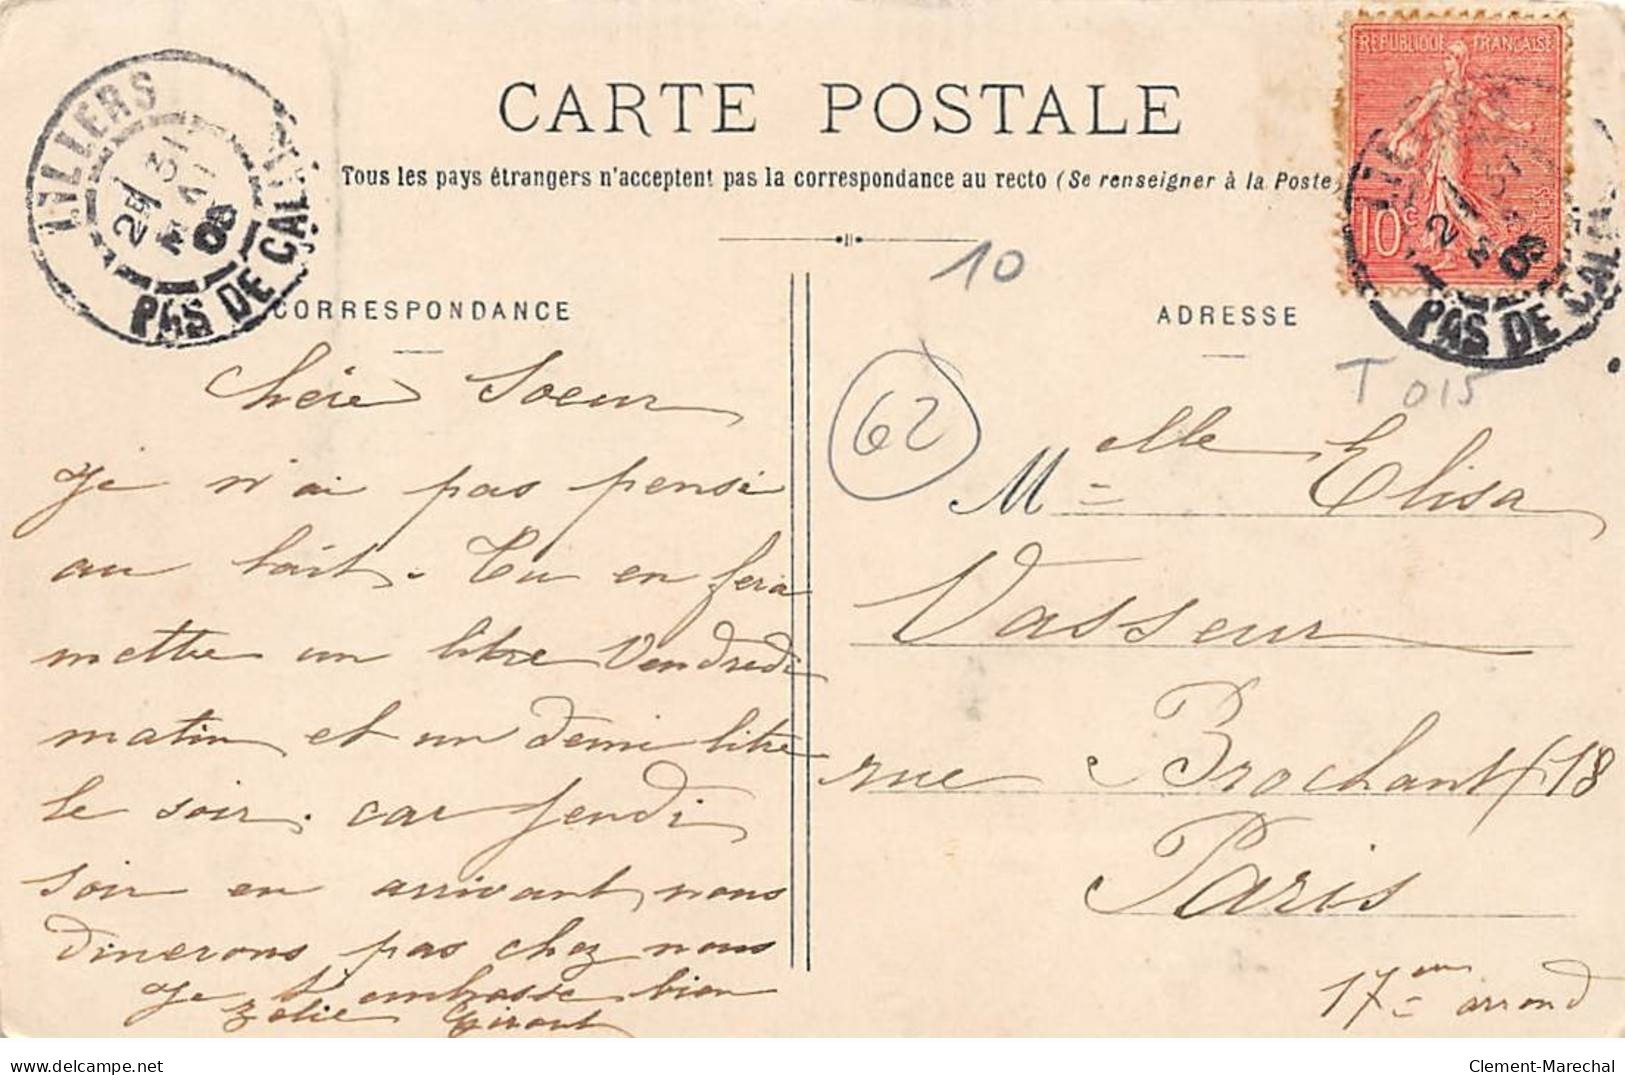 CARTE POSTALE
Tous les pays étrangers n'acceptent pas la correspondance au recto (Se renseigner à la Poste)
LILLERS
31
MAI
05
PAS DE CALAIS
REPUBLIQUE FRANÇAISE
10c
PAS DE CALAIS
10
CORRESPONDANCE
ADRESSE
62
T 015
Chère Soeur
Je n'ai pas pensé
au lait. Tu en fera
mettre un litre Vendredi
matin et un demi litre
le soir. car jeudi
soir en arrivant nous
dinerons pas chez nous
Je t'embrasse bien
Zélie
Melle Elisa
Vasseur
rue Brochant 18
Paris
17em arrond
Clement-Marechal
delcampe.net